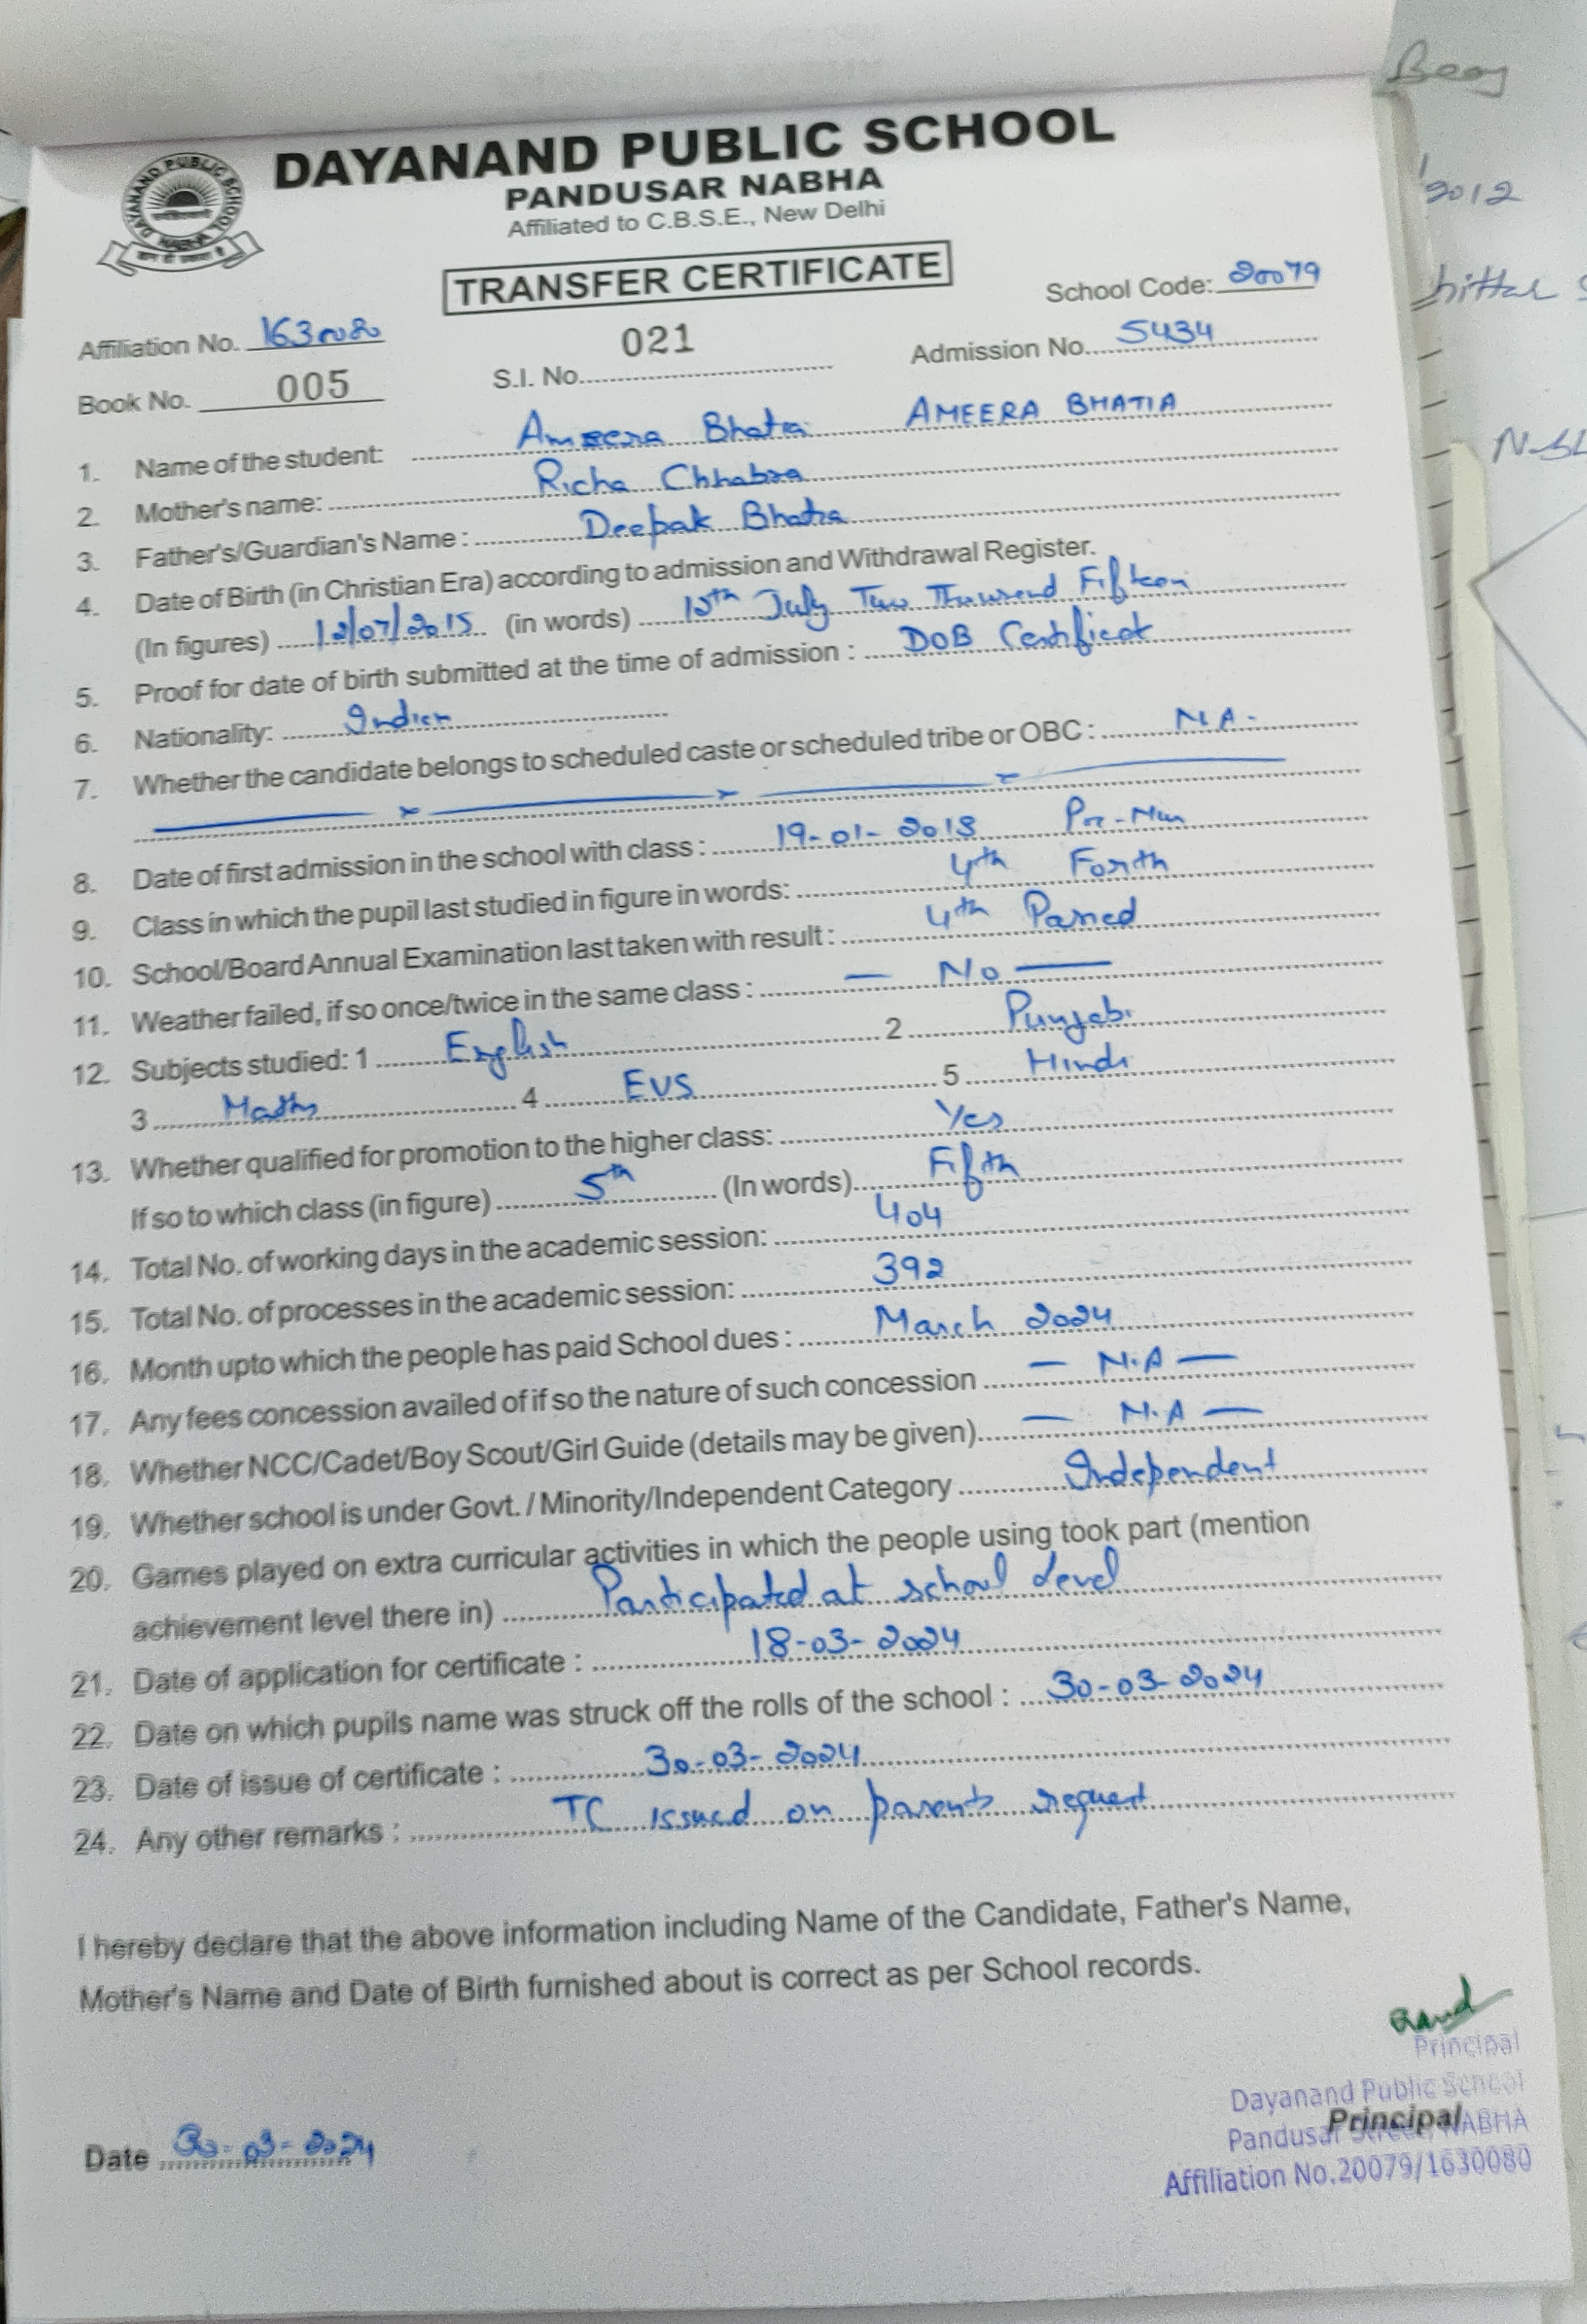 Beey
DAYANAND PUBLIC SCHOOL
PANDUSAR NABHA
Affiliated to C.B.S.E., New Delhi
DAYANAND PUBLIC SCHOOL
NABHA
2012
TRANSFER CERTIFICATE
School Code: 20079
Affiliation No. 1630080
021
Admission No. 5434
Book No. 005
S.I. No.
1. Name of the student: Ameera Bhatia AMEERA BHATIA
2. Mother's name: Richa Chhabra
3. Father's/Guardian's Name : Deepak Bhatia
4. Date of Birth (in Christian Era) according to admission and Withdrawal Register.
(In figures) 12/07/2015 (in words) 12th July Two Thousand Fifteen
5. Proof for date of birth submitted at the time of admission : DOB Certificat
6. Nationality: Indian
7. Whether the candidate belongs to scheduled caste or scheduled tribe or OBC : N.A.
8. Date of first admission in the school with class : 19-01-2018 Pre-Nur
9. Class in which the pupil last studied in figure in words: 4th Forth
10. School/Board Annual Examination last taken with result : 4th Passed
11. Weather failed, if so once/twice in the same class : — No —
12. Subjects studied: 1 English 2 Punjabi
3 Maths 4 EVS 5 Hindi
13. Whether qualified for promotion to the higher class: Yes
If so to which class (in figure) 5th (In words) Fifth
14. Total No. of working days in the academic session: 404
15. Total No. of processes in the academic session: 392
16. Month upto which the people has paid School dues : March 2024
17. Any fees concession availed of if so the nature of such concession — N.A —
18. Whether NCC/Cadet/Boy Scout/Girl Guide (details may be given) — N.A —
19. Whether school is under Govt. / Minority/Independent Category Independent
20. Games played on extra curricular activities in which the people using took part (mention
achievement level there in) Participated at school level
21. Date of application for certificate : 18-03-2024
22. Date on which pupils name was struck off the rolls of the school : 30-03-2024
23. Date of issue of certificate : 30-03-2024
24. Any other remarks : TC issued on parents request
I hereby declare that the above information including Name of the Candidate, Father's Name,
Mother's Name and Date of Birth furnished about is correct as per School records.
Principal
Dayanand Public School
Principal
Pandusar Street, NABHA
Affiliation No.20079/1630080
Date 30-03-2024